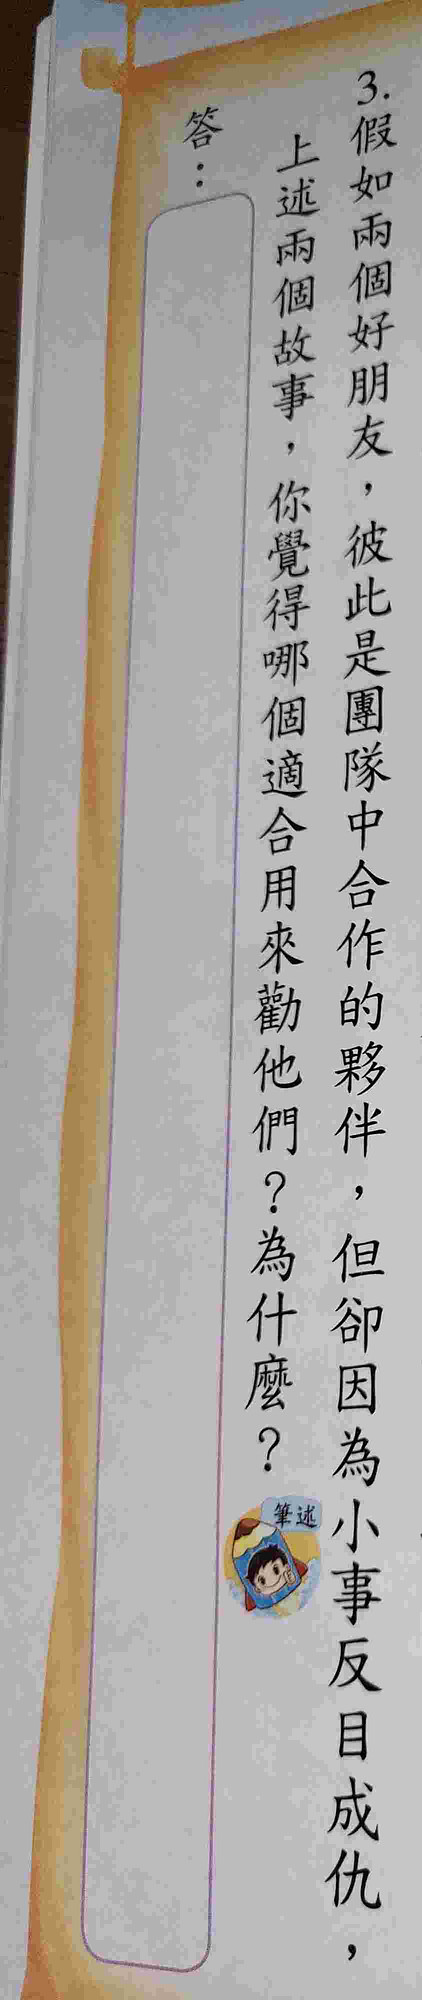 3.假如兩個好朋友，彼此是團隊中合作的夥伴，但卻因為小事反目成仇，
上述兩個故事，你覺得哪個適合用來勸他們？為什麼？
筆述
答：